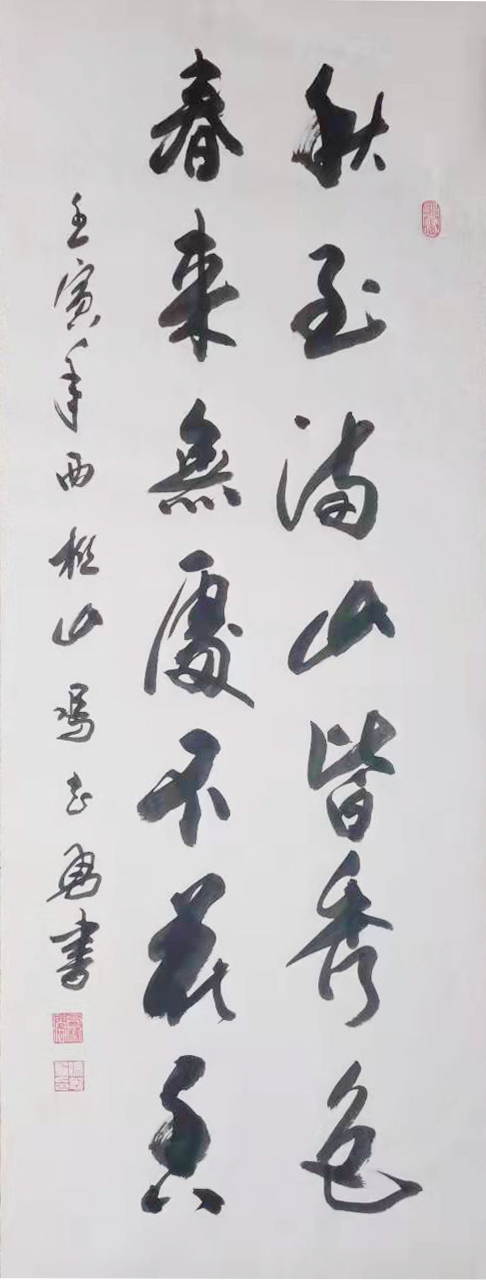 秋至满山皆秀色
春来無處不花香
壬寅年西樵山冯志勇書